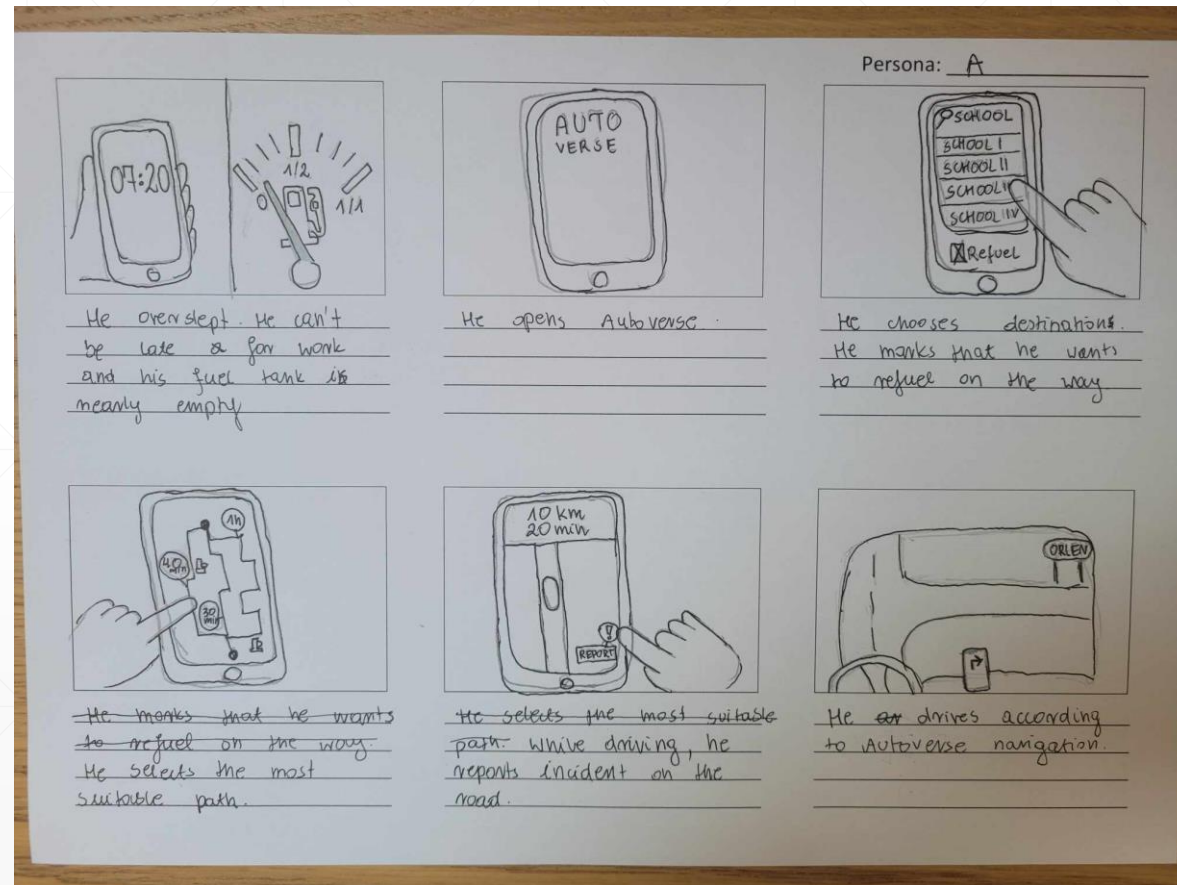 Persona: A
07:20
0
1/2
1/1
He overslept. He can't
be late for work
and his fuel tank is
nearly empty
AUTO
VERSE
He opens Autoverse.
SCHOOL
SCHOOL I
SCHOOL II
SCHOOL
SCHOOL IIV
Refuel
He chooses destinations.
He marks that he wants
to refuel on the way
1h
40 min
30 min
He marks that he wants
to refuel on the way.
He selects the most
suitable path.
10 km
20 min
!
REPORT
He selects the most suitable
path. While driving, he
reports incident on the
road.
ORLEN
He drives according
to Autoverse navigation.